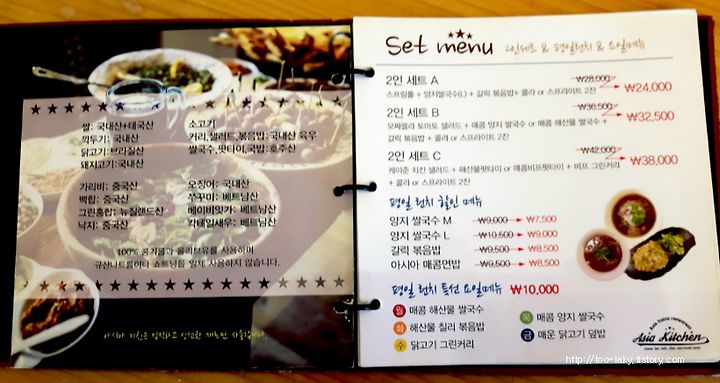 쌀: 국내산+태국산
깍두기: 국내산
닭고기:브라질산
돼지고기:국내산
소고기
커리,샐러드,볶음밥:국내산 육우
쌀국수,팟타이,국밥:호주산
가리비: 중국산
백합: 중국산
그린홍합: 뉴질랜드산
낙지: 중국산
오징어: 국내산
쭈꾸미: 베트남산
베이비잇가: 베트남산
칵테일새우: 베트남산
100% 콩기름과 올리브유를 사용하며
규산나트륨이나 쇼트닝을 일체 사용하지 않습니다.
아시아 키친은 정직하고 신선한 재료만 사용합니다.
Set menu 2인세트 & 평일런치 & 요일메뉴
2인 세트 A ₩28,000 ₩24,000
스프링롤 + 양지쌀국수(L) + 갈릭 볶음밥+ 콜라 or 스프라이트 2잔
2인 세트 B ₩36,500 ₩32,500
모짜렐라 토마토 샐러드 + 매콤 양지 쌀국수 or 매콤 해산물 쌀국수 +
갈릭 볶음밥 + 콜라 or 스프라이트 2잔
2인 세트 C ₩42,000 ₩38,000
케이준 치킨 샐러드 + 해산물팟타이 or 매콤비프팟타이 + 비프 그린커리
+ 콜라 or 스프라이트 2잔
평일 런치 할인 메뉴
양지 쌀국수 M ₩9,000 ₩7,500
양지 쌀국수 L ₩10,500 ₩9,000
갈릭 볶음밥 ₩9,500 ₩8,500
아시아 매콤면밥 ₩9,500 ₩8,500
평일 런치 특선 요일메뉴 ₩10,000
월 매콤 해산물 쌀국수
화 해산물 칠리 볶음밥
수 닭고기 그린커리
목 매콤 양지 쌀국수
금 매운 닭고기 덮밥
Asia Kitchen
http://too-laky.tistory.com/